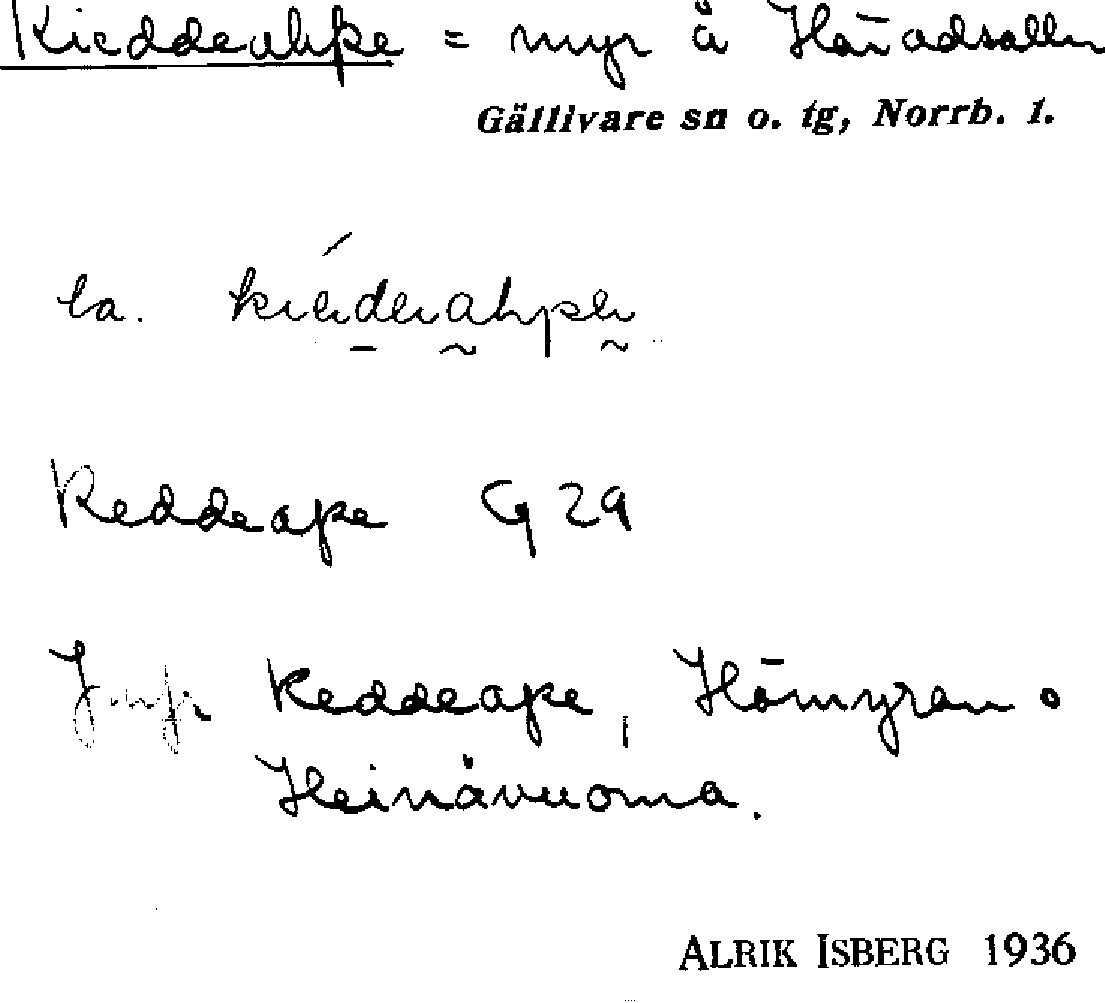 Kieddeahpe = myr å Häradsallm
Gällivare sn o. tg, Norrb. l.
la. kiedde̱ahpe
Keddeape G 29
Jmfr. Keddeape, Hömyran o
Heinävuoma.
ALRIK ISBERG 1936